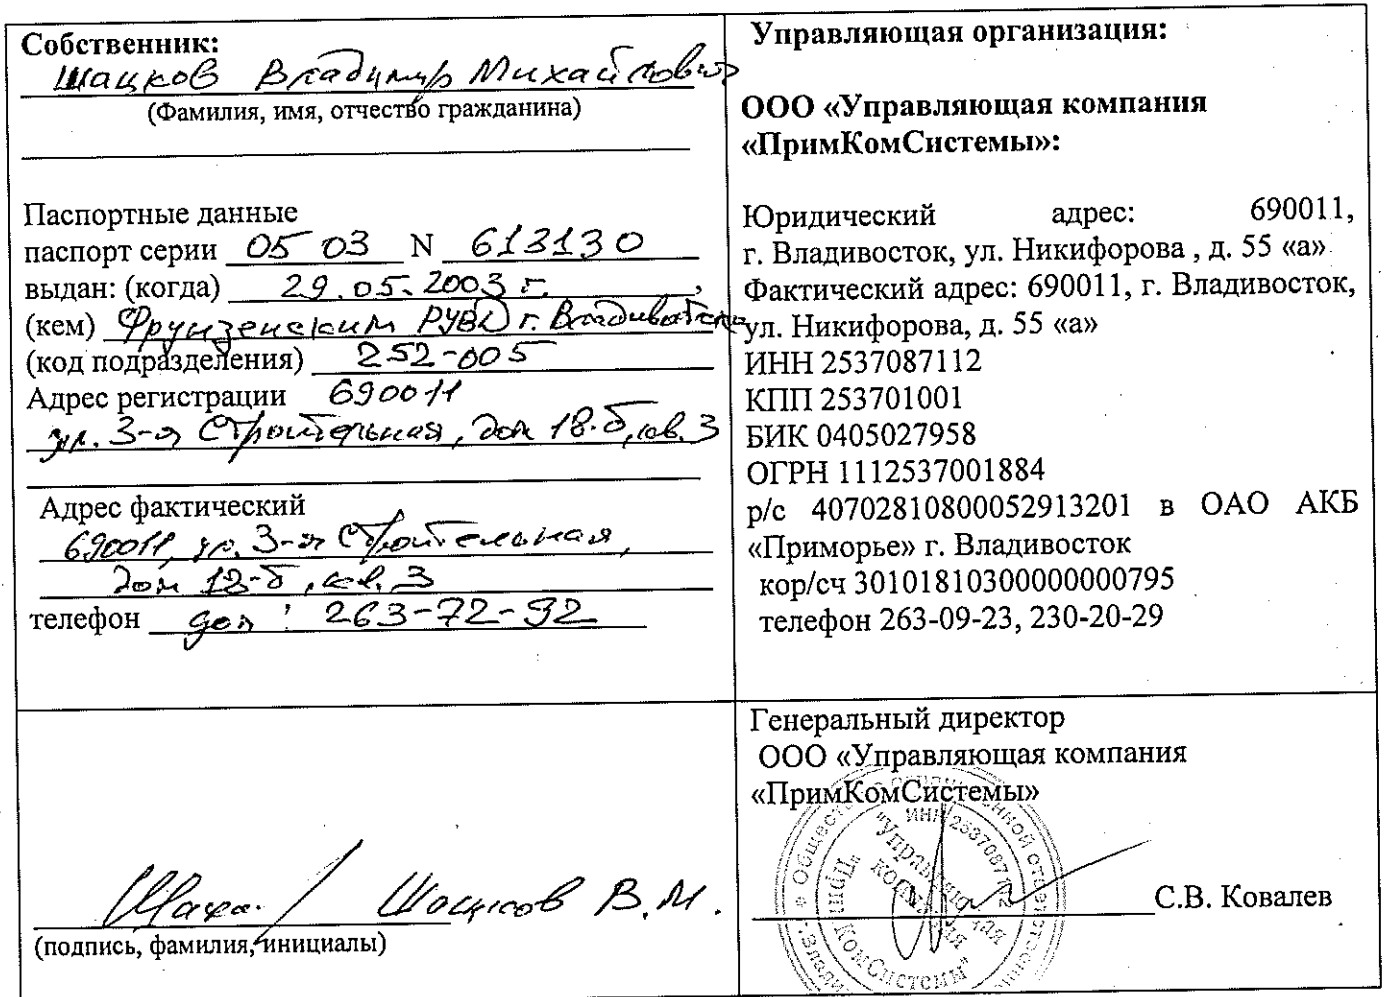 Собственник:
Шацков Владимир Михайлович
(Фамилия, имя, отчество гражданина)
Паспортные данные
паспорт серии 05 03 N 613130
выдан: (когда) 29.05.2003 г.,
(кем) Фрунзенским РУВД г. Владивостока
(код подразделения) 252-005
Адрес регистрации 690011
ул. 3-я Строительная, дом 18-б, кв. 3
Адрес фактический
690011, ул. 3-я Строительная,
дом 18-б, кв. 3
телефон дом: 263-72-92
Управляющая организация:
ООО «Управляющая компания
«ПримКомСистемы»:
Юридический адрес: 690011,
г. Владивосток, ул. Никифорова , д. 55 «а»
Фактический адрес: 690011, г. Владивосток,
ул. Никифорова, д. 55 «а»
ИНН 2537087112
КПП 253701001
БИК 0405027958
ОГРН 1112537001884
р/с 40702810800052913201 в ОАО АКБ
«Приморье» г. Владивосток
кор/сч 30101810300000000795
телефон 263-09-23, 230-20-29
/ Шацков В.М.
(подпись, фамилия, инициалы)
Генеральный директор
ООО «Управляющая компания
«ПримКомСистемы»
С.В. Ковалев
ИНН 2537087112
"Управляющая
компания
"ПримКомСистемы"